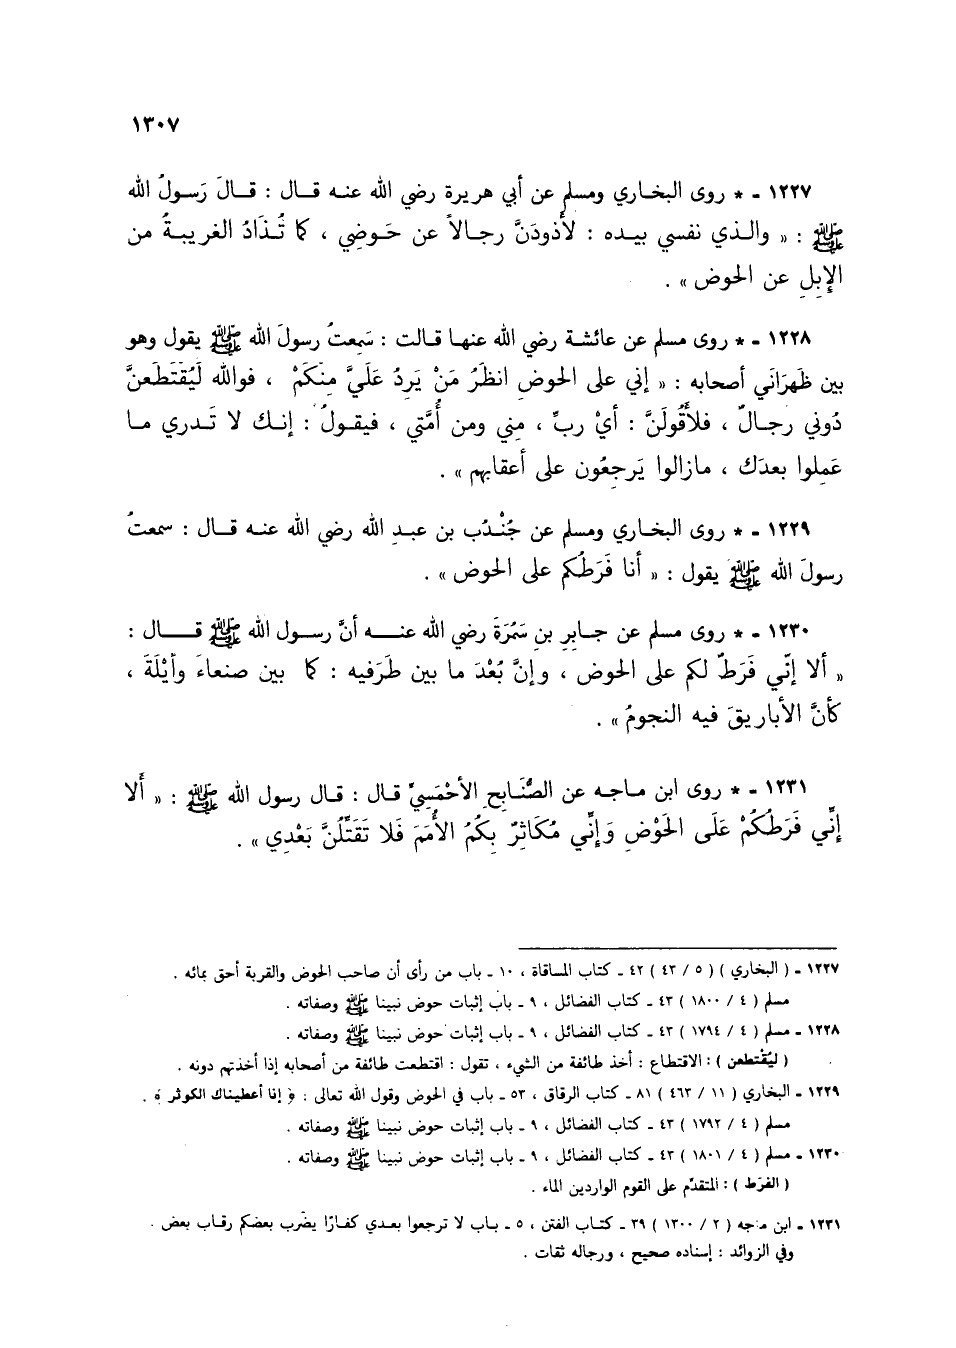 ١٣٠٧
١٢٢٧ - * روى البخاري ومسلم عن أبي هريرة رضي الله عنه قال : قالَ رَسولُ الله
ﷺ : « والذي نفسي بيده : لأَذودَنَّ رجالاً عن حَوضِي ، كما تُذَادُ الغريبةُ من
الإِبِلِ عن الحوض » .
١٢٢٨ - * روى مسلم عن عائشة رضي الله عنها قالت : سَمِعتُ رسولَ الله ﷺ يقول وهو
بين ظَهرَاني أصحابه : « إني على الحوض انظَرُ مَنْ يَرِدُ عَلَيَّ مِنكَمْ ، فوالله لَيُقتَطَعنَّ
دُوني رجالٌ ، فلأَقُولَنَّ : أيْ ربِّ ، مِني ومن أُمَّتي ، فيقولُ : إنك لا تَدري ما
عَمِلوا بعدَك ، مازالوا يَرجِعُون على أعقابهم » .
١٢٢٩ - * روى البخاري ومسلم عن جُنْدُب بن عبدِ الله رضي الله عنه قال : سمعتُ
رسولَ الله ﷺ يقول : « أنا فَرَطُكم على الحوض » .
١٢٣٠ - * روى مسلم عن جابرِ بنِ سَمُرَةَ رضي الله عنه أنَّ رسول الله ﷺ قال :
« ألا إنّي فَرَطٌ لكم على الحوض ، وإنَّ بُعْدَ ما بين طَرَفيه : كما بين صنعاءَ وأيْلَةَ ،
كأنَّ الأباريقَ فيه النجومُ » .
١٢٣١ - * روى ابن ماجه عن الصُّنَابحِ الأحْمَسِيِّ قال : قال رسول الله ﷺ : « أَلا
إِنِّي فَرَطُكُمْ عَلَى الحَوْضِ وَإِنِّي مُكَاثِرٌ بِكُمُ الأُمَمَ فَلا تَقَتِّلُنَّ بَعْدِي » .
١٢٢٧ - ( البخاري ) ( ٥ / ٤٣ ) ٤٢ - كتاب المساقاة ، ١٠ - باب من رأى أن صاحب الحوض والقربة أحق بمائه .
مسلم ( ٤ / ١٨٠٠ ) ٤٣ - كتاب الفضائل ، ٩ - باب إثبات حوض نبينا ﷺ وصفاته .
١٢٢٨ - مسلم ( ٤ / ١٧٩٤ ) ٤٣ - كتاب الفضائل ، ٩ - باب إثبات حوض نبينا ﷺ وصفاته .
( ليُقْتطعن ) : الاقتطاع : أخذ طائفة من الشيء ، تقول : اقتطعت طائفة من أصحابه إذا أخذتهم دونه .
١٢٢٩ - البخاري ( ١١ / ٤٦٣ ) ٨١ - كتاب الرقاق ، ٥٣ - باب في الحوض وقول الله تعالى : ﴿ إنا أعطيناك الكوثر ﴾ .
مسلم ( ٤ / ١٧٩٢ ) ٤٣ - كتاب الفضائل ، ٩ - باب إثبات حوض نبينا ﷺ وصفاته .
١٢٣٠ - مسلم ( ٤ / ١٨٠١ ) ٤٣ - كتاب الفضائل ، ٩ - باب إثبات حوض نبينا ﷺ وصفاته .
( الفرَط ) : المتقدّم على القوم الواردين الماء .
١٢٣١ - ابن ماجه ( ٢ / ١٣٠٠ ) ٣٩ - كتاب الفتن ، ٥ - باب لا ترجعوا بعدي كفارًا يضرب بعضكم رقاب بعض .
وفي الزوائد : إسناده صحيح ، ورجاله ثقات .